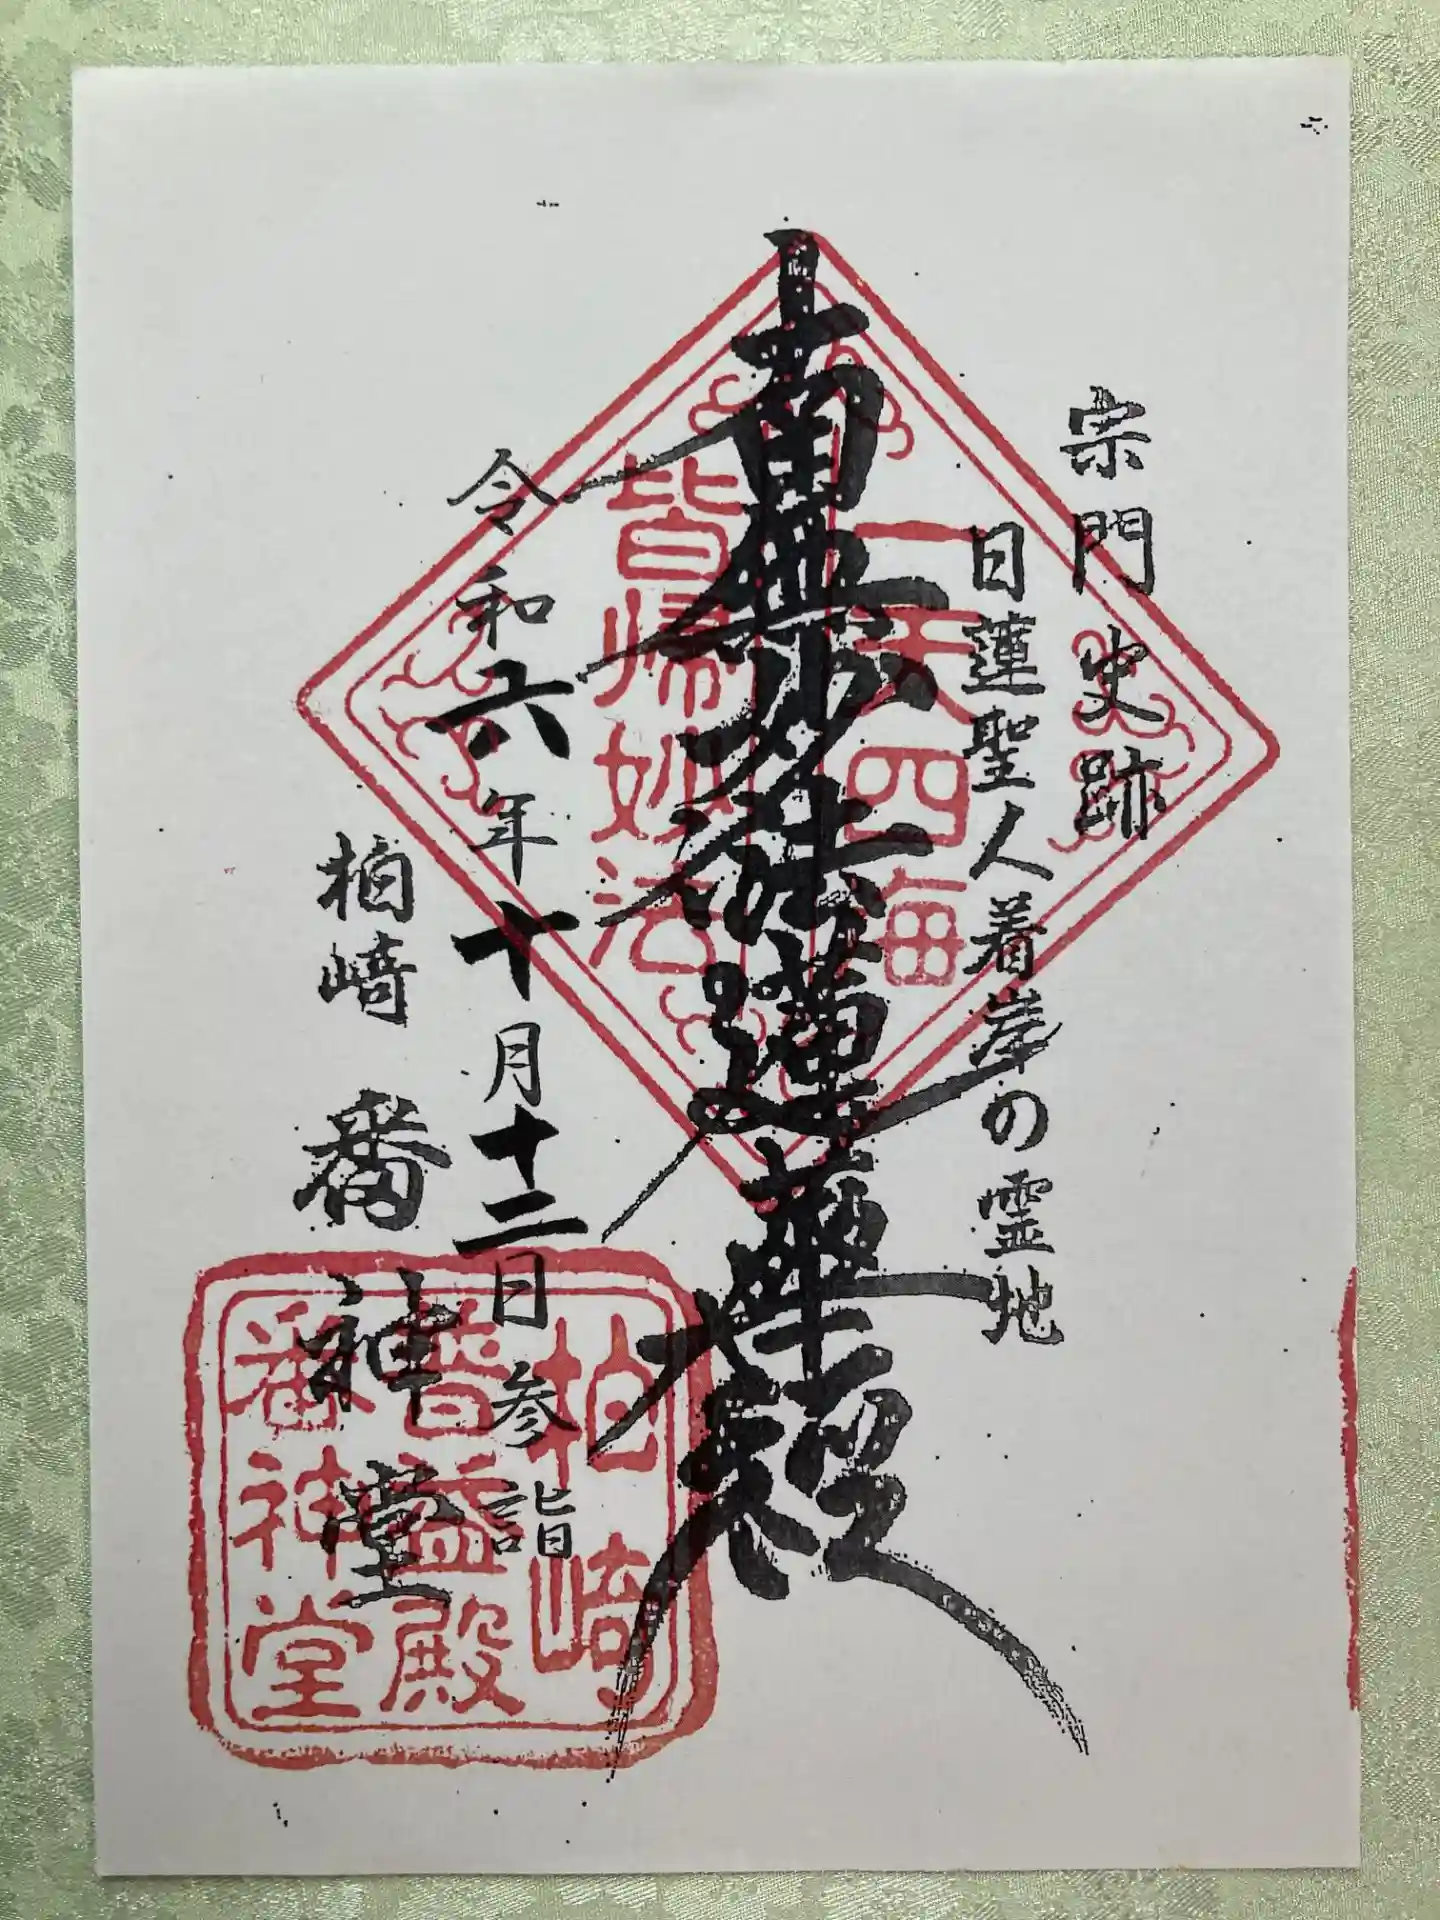 宗門史跡
日蓮聖人着岸の霊地
南無妙法蓮華経
一天四海
皆帰妙法
令和六年十月十二日参詣
柏崎 番神堂
柏崎
普益殿
番神堂